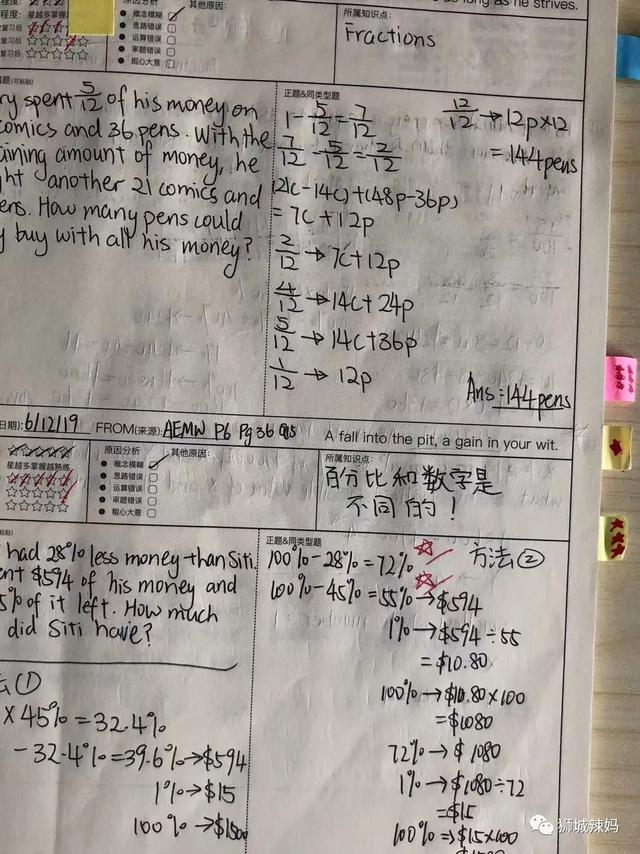 as long as he strives.
原因分析
其他原因:
概念模糊
思路错误
运算错误
审题错误
粗心大意
星越多掌握越熟练
复习后
复习后
所属知识点:
Fractions
题(可粘贴)
ry spent 5/12 of his money on
comics and 36 pens. With the
aining amount of money, he
ght another 21 comics and
ens. How many pens could
y buy with all his money?
正题&同类型题
1 - 5/12 = 7/12
7/12 - 5/12 = 2/12
(21c - 14c) + (48p - 36p)
= 7c + 12p
2/12 → 7c + 12p
4/12 → 14c + 24p
5/12 → 14c + 36p
1/12 → 12p
12/12 → 12p × 12
= 144 pens
Ans: 144 pens
日期): 6/12/19 FROM(来源): AEMW P6 Pg 36 Q15 A fall into the pit, a gain in your wit.
星越多掌握越熟练
原因分析
其他原因:
概念模糊
思路错误
运算错误
审题错误
粗心大意
所属知识点:
百分比和数字是
不同的!
粘贴)
had 28% less money than Siti.
ent $594 of his money and
5% of it left. How much
did Siti have?
法①
× 45% = 32.4%
- 32.4% = 39.6% → $594
1% → $15
100% → $1500
正题&同类型题
方法②
100% - 28% = 72%
100% - 45% = 55% → $594
1% → $594 ÷ 55
= $10.80
100% → $10.80 × 100
= $1080
72% → $1080
1% → $1080 ÷ 72
= $15
100% → $15 × 100
狮城辣妈